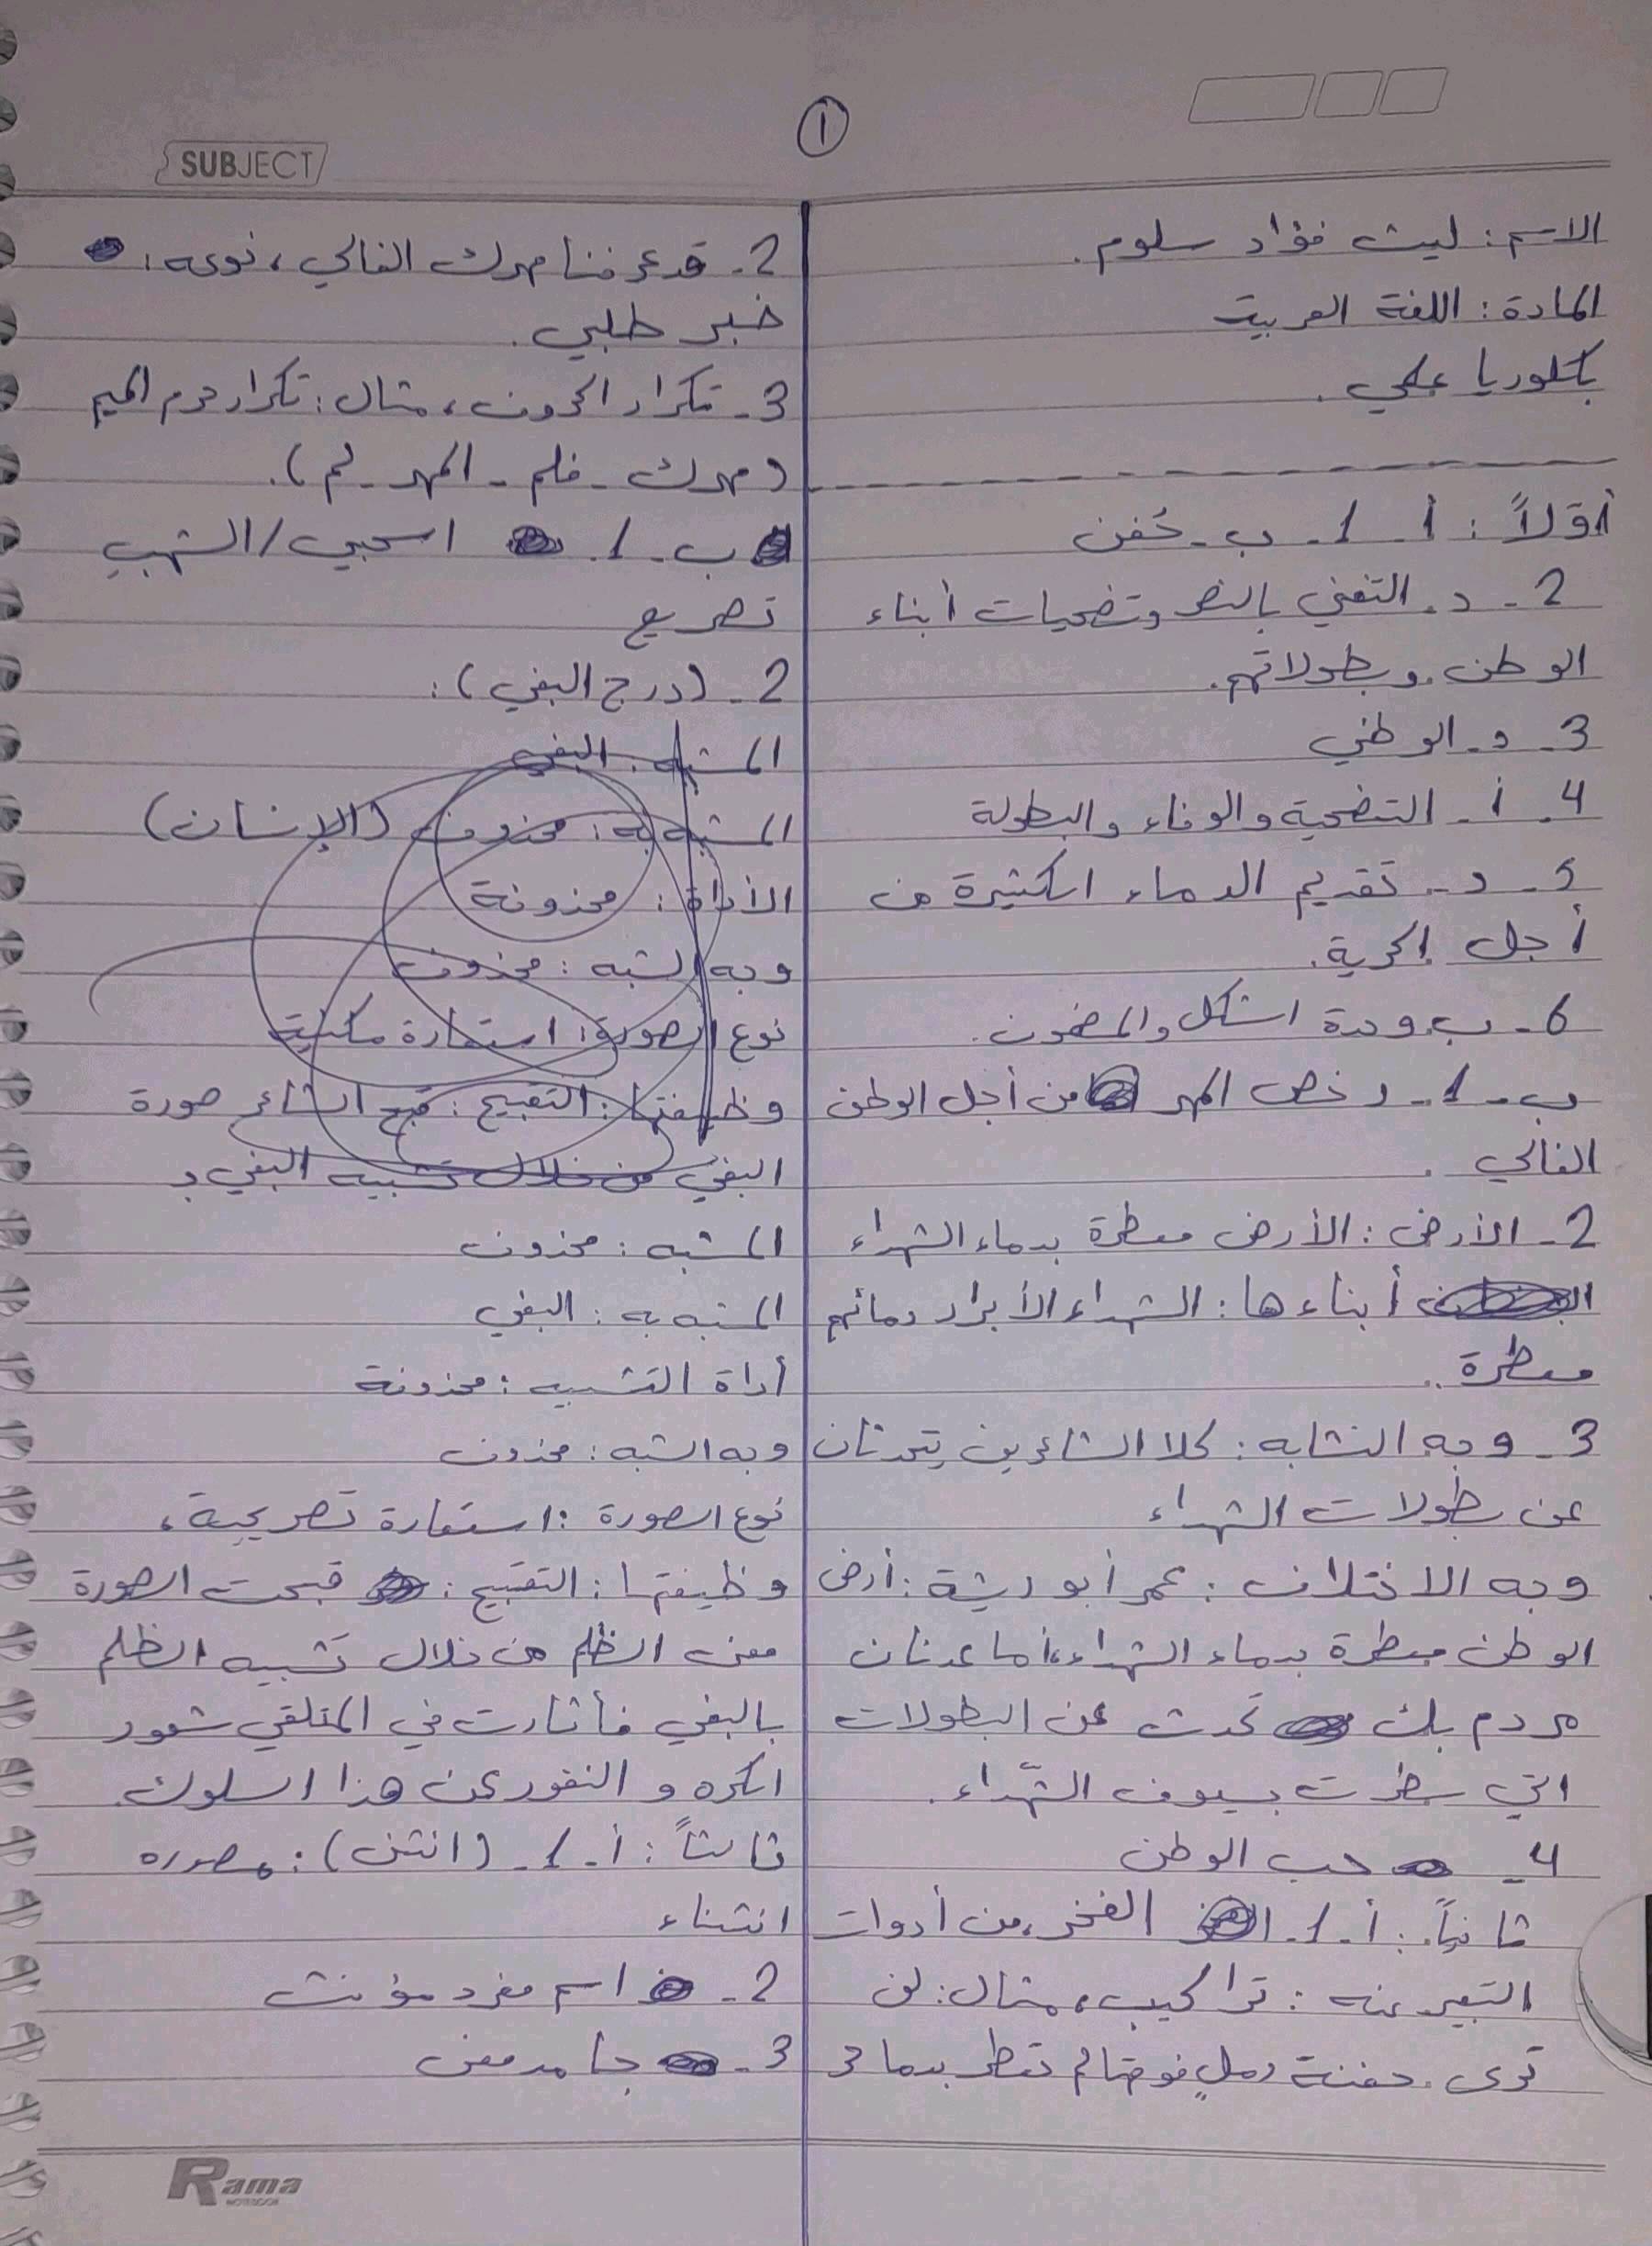 ١
SUBJECT
الاسم: ليث فؤاد سلوم.
المادة: اللغة العربية
بكلوريا علمي.
أولاً: أ. 1. ب. حُفن
2. د. التغني بالنصر وتضحيات أبناء
الوطن. وبطولاتهم.
3. د. الوطني
4. أ. التضحية والوفاء والبطولة
5. د. تقديم الدماء الكثيرة من
أجل الحرية.
6. ب. وحدة الشكل والمضمون.
ب. 1. رخص المهر من أجل الوطن
الغالي.
2. الأرض: الأرض معطرة بدماء الشهداء
أبناءها: الشهداء الأبرار دمائهم
معطرة.
3. وجه التشابه: كلا الشاعرين يتحدثان
عن بطولات الشهداء
وجه الاختلاف: عمر أبو ريشة: أرض
الوطن معطرة بدماء الشهداء، أما عدنان
مردم بك تحدث عن البطولات
التي سطرت بسيوف الشّهداء.
4. حب الوطن
ثانياً: أ. 1. الفخر، من أدوات
التعبير عنه: تراكيب، مثال: لن
ترى. حفنة رملٍ فوقها لم تعطر بدما حر
2. قد عرفنا مهرك الغالي، نوعه:
خبر طلبي.
3. تكرار الحروف، مثال: تكرار حرف الميم
(مهرك - فلم - المهر - لم).
ب. 1. اسحبي/الشهب
تصريع
2. (درج البغي):
المشبه: البغي
المشبه به: محذوف (الإنسان)
الأداة: محذوفة
وجه الشبه: محذوف
نوع الصورة: استعارة مكنية
وظيفتها: التقبيح: قبح الشاعر صورة
البغي من خلال تشبيه البغي بـ
المشبه: محذوف
المشبه به: البغي
أداة التشبيه: محذوفة
وجه الشبه: محذوف
نوع الصورة: استعارة تصريحية،
وظيفتها: التقبيح: قبحت الصورة
معنى الظلم من خلال تشبيه الظلم
بالبغي فأثارت في المتلقي شعور
الكره و النفور عن هذا السلوك.
ثالثاً: أ. 1. (انتشى): مصدره
انتشاء
2. اسم مفرد مؤنث
3. جامد معنى
Rama
NOTEBOOK